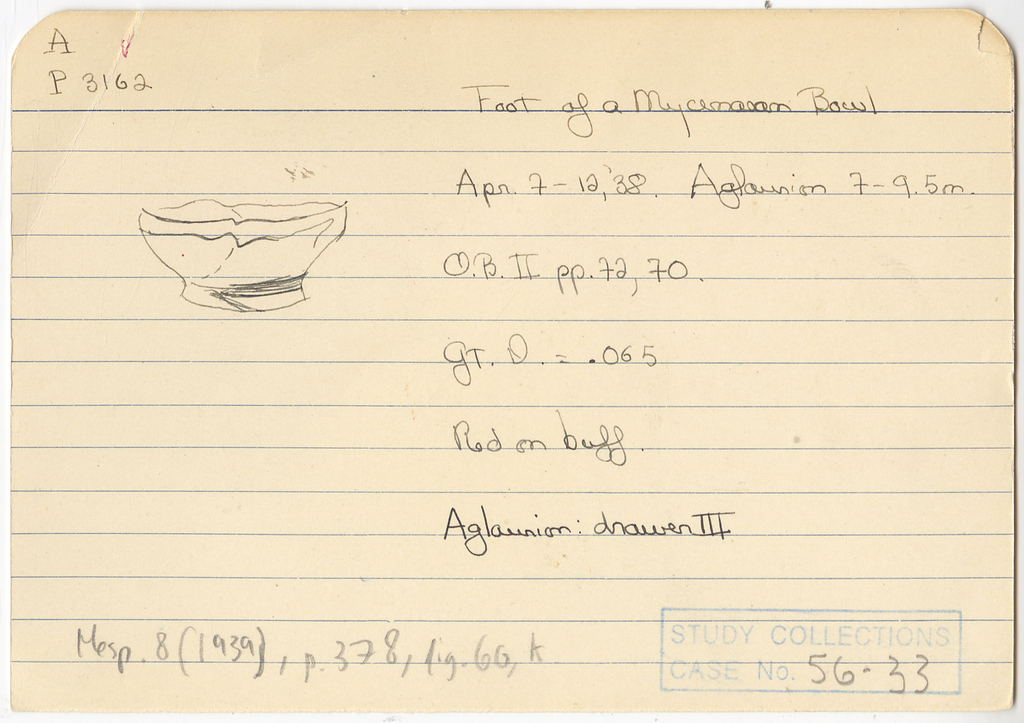 A
P 3162
Foot of a Mycenaean Bowl
Apr. 7-12, '38. Aglaurion 7-9.5m.
O.B. II pp. 72, 70.
GT. D. = .065
Red on buff.
Aglaurion: drawer III
Hesp. 8 (1939), p. 378, fig. 60, k
STUDY COLLECTIONS
CASE No. 56-33